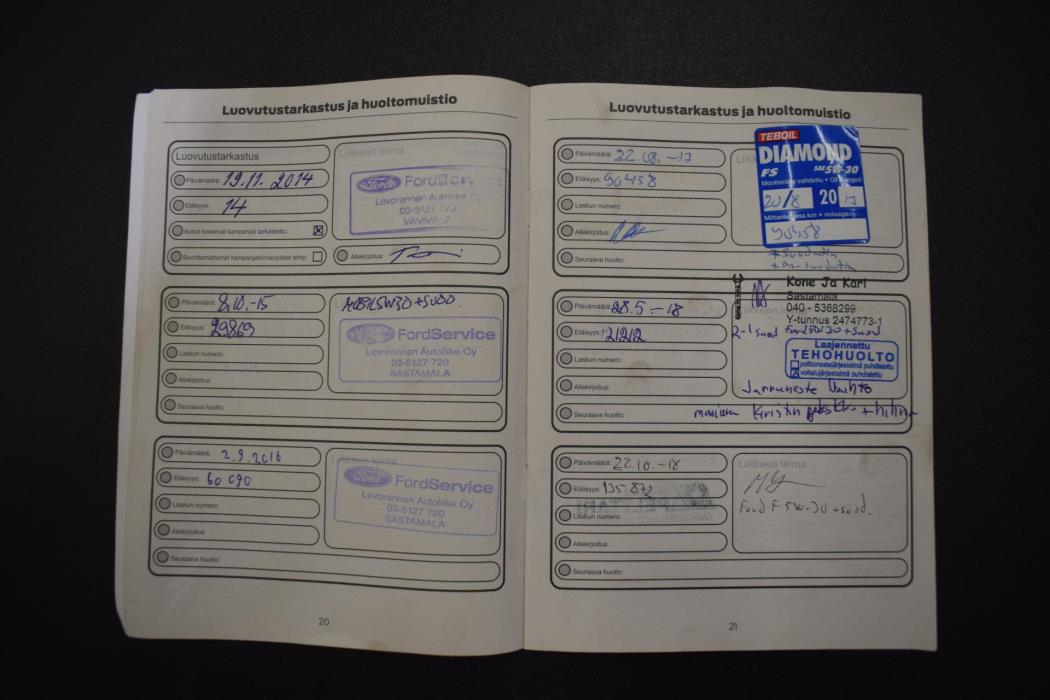 Luovutustarkastus ja huoltomuistio
Luovutustarkastus
Päivämäärä: 19.11. 2014
Etäisyys: 14
Autoa koskevat kampanjat tarkastettu:
Suorittamattomat kampanjatoimenpiteet tehty:
Liikkeen leima
Ford
Levorannan Autoliike Oy
03-5127 720
VAMMALA
Allekirjoitus:
Päivämäärä: 8.10.-15
Etäisyys: 29869
Laskun numero:
Allekirjoitus:
Seuraava huolto:
5W30 + SUOD.
Ford FordService
Levorannan Autoliike Oy
03-5127 720
SASTAMALA
Päivämäärä: 2.9.2016
Etäisyys: 60 090
Laskun numero:
Allekirjoitus:
Seuraava huolto:
Liikkeen leima
Ford FordService
Levorannan Autoliike Oy
03-5127 720
SASTAMALA
20
Luovutustarkastus ja huoltomuistio
Päivämäärä: 22.08.-17
Etäisyys: 90458
Laskun numero:
Allekirjoitus:
Seuraava huolto:
TEBOIL
DIAMOND
FS SAE 5W-30
Moottoriöljy vaihdettu •
20/8 2017
km • mileage
90458
Päivämäärä: 28.5-18
Etäisyys: 121212
Laskun numero:
Allekirjoitus:
Seuraava huolto:
Kone Ja Kari
Sastamala
040 - 5368299
Y-tunnus 2474773-1
Ford 5W30 + suod
Laajennettu
TEHOHUOLTO
polttonestejärjestelmä puhdistettu
voitelujärjestelmä puhdistettu
Jarruneste Vaihto
+ hihna
Päivämäärä: 22.10.-18
Etäisyys: 135 872
Laskun numero:
Allekirjoitus:
Seuraava huolto:
Liikkeen leima
Ford F 5W-30 + suod.
21